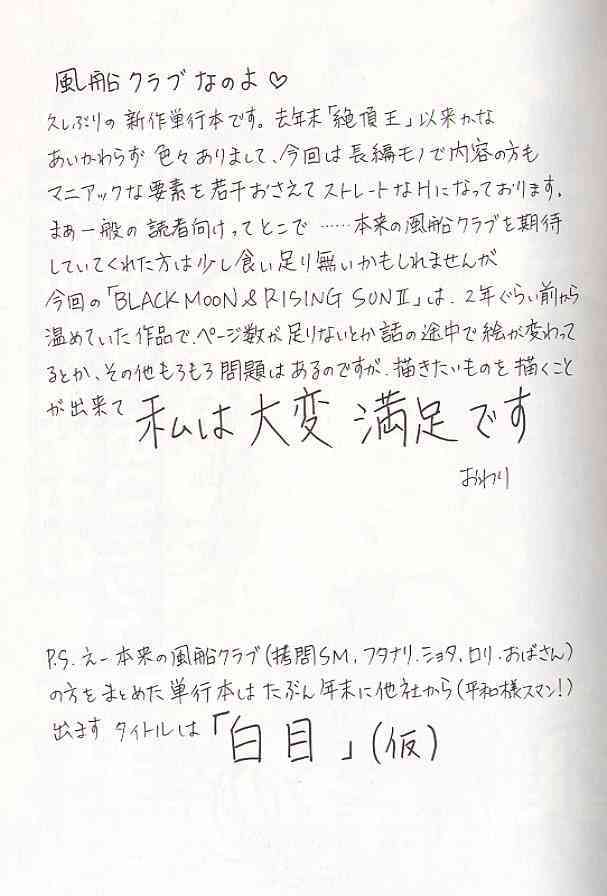 風船クラブなのよ♡
久しぶりの新作単行本です。去年末「絶頂王」以来かな
あいかわらず色々ありまして、今回は長編モノで内容の方も
マニアックな要素を若干おさえてストレートなHになっております。
まぁ一般の読者向けってとこで……本来の風船クラブを期待
していてくれた方は少し食い足り無いかもしれませんが
今回の「BLACK MOON & RISING SUN Ⅱ」は、2年ぐらい前から
温めていた作品で、ページ数が足りないとか話の途中で絵が変わって
るとか、その他もろもろ問題はあるのですが、描きたいものを描くこと
が出来て 私は大変満足です
おわり
P.S. えー本来の風船クラブ(拷問SM、フタナリ、ショタ、ロリ、おばさん)
の方をまとめた単行本はたぶん年末に他社から(平和様スマン!)
出ます タイトルは「白目」(仮)